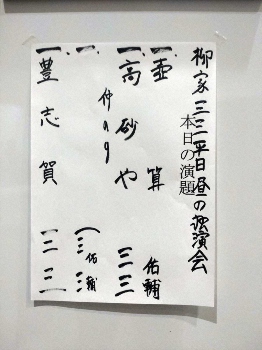 柳家三三平日昼の独演会
本日の演題
一、壷算 佑輔
一、高砂や 三三
仲入り
一、 佑輔
一、豊志賀 三三